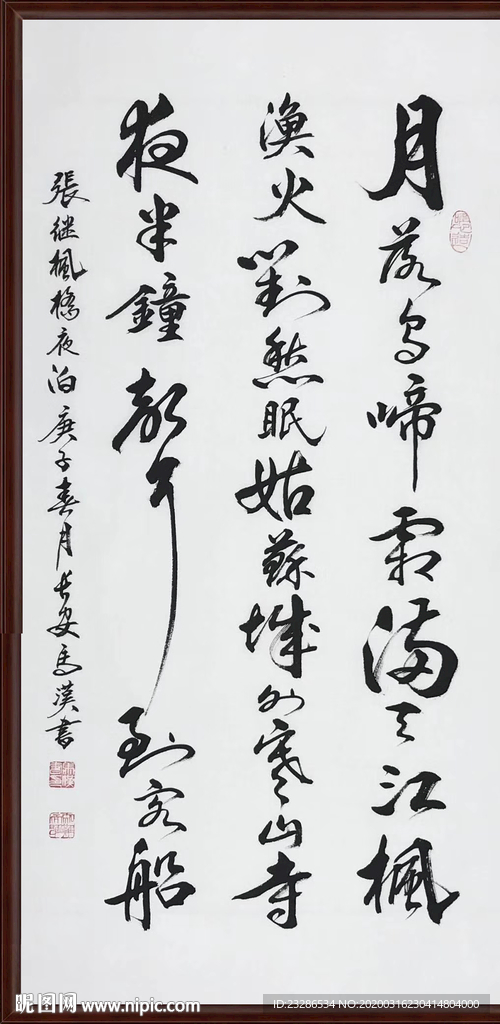 月落烏啼霜滿天江楓
漁火對愁眠姑蘇城外寒山寺
夜半鐘聲到客船
張継楓橋夜泊庚子春月長安馬漢書
昵图网 www.nipic.com
ID:23286534 NO:20200316230414804000